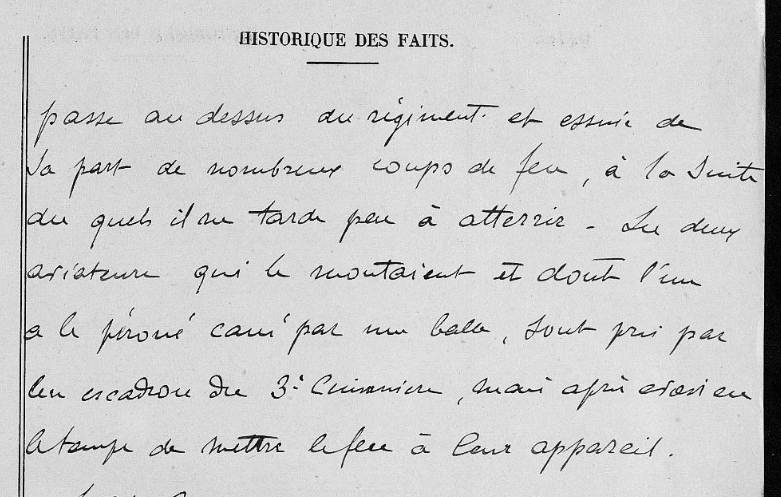 HISTORIQUE DES FAITS.
passe au dessus du régiment et essuie de
sa part de nombreux coups de feu, à la suite
du quels il ne tarde peu à atterrir - Les deux
aviateurs qui le montaient et dont l'un
a le péroné cassé par une balle, sont pris par
un escadron du 3e Cuirassiers, mais après avoir eu
le temps de mettre le feu à leur appareil.